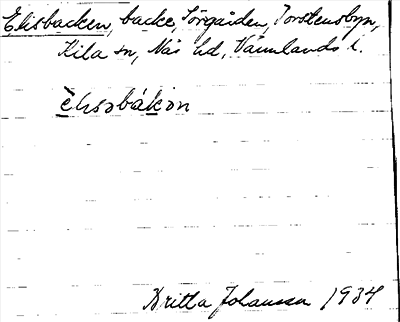 Elisbacken, backe, Sörgården, Torstensbyn,
Kila sn, Näs hd, Värmlands l.
èlısəbákən
Britta Johansson 1934